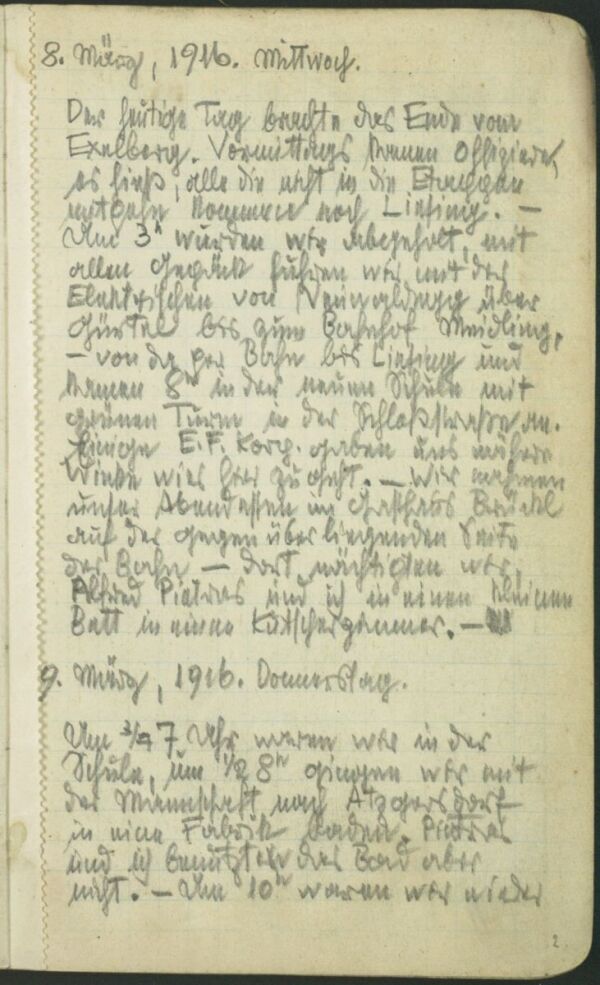 8. März, 1916. Mittwoch.
Der heutige Tag brachte das Ende vom
Exelberg. Vormittags kamen Offiziere,
es hieß, alle die nicht in die Etappen
mitgehn kommen nach Liesing. —
Um 3h wurden wir abgeholt, mit
allen Gepäck fuhren wir mit der
Elektrischen von Neuwaldegg über
Gürtel bis zum Bahnhof Meidling,
— von da per Bahn bis Liesing und
kamen 8h in der neuen Schule mit
grünen Turm in der Schloßstraße an.
Einige E.F. Korp. gaben uns nähere
Winke wies hier zugeht. — Wir nahmen
unser Abendessen im Gasthaus Brückl
auf der gegenüberliegenden Seite
der Bahn — dort nächtigten wir,
Alfred Pietras und ich in einen kleinen
Bett in einem Kutscherzimmer. —
9. März, 1916. Donnerstag.
Um 3/4 7 Uhr waren wir in der
Schule, um 1/2 8h gingen wir mit
der Mannschaft nach Atzgersdorf
in eine Fabrik baden. Pietras
und ich benützten das Bad aber
nicht. — Um 10h waren wir wieder
2